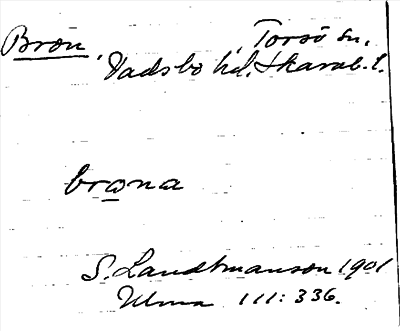 Bron, Torsö sn.
Vadsbo hd. Skarab. l.
brona
S. Landtmanson 1901
Ulma 111:336.